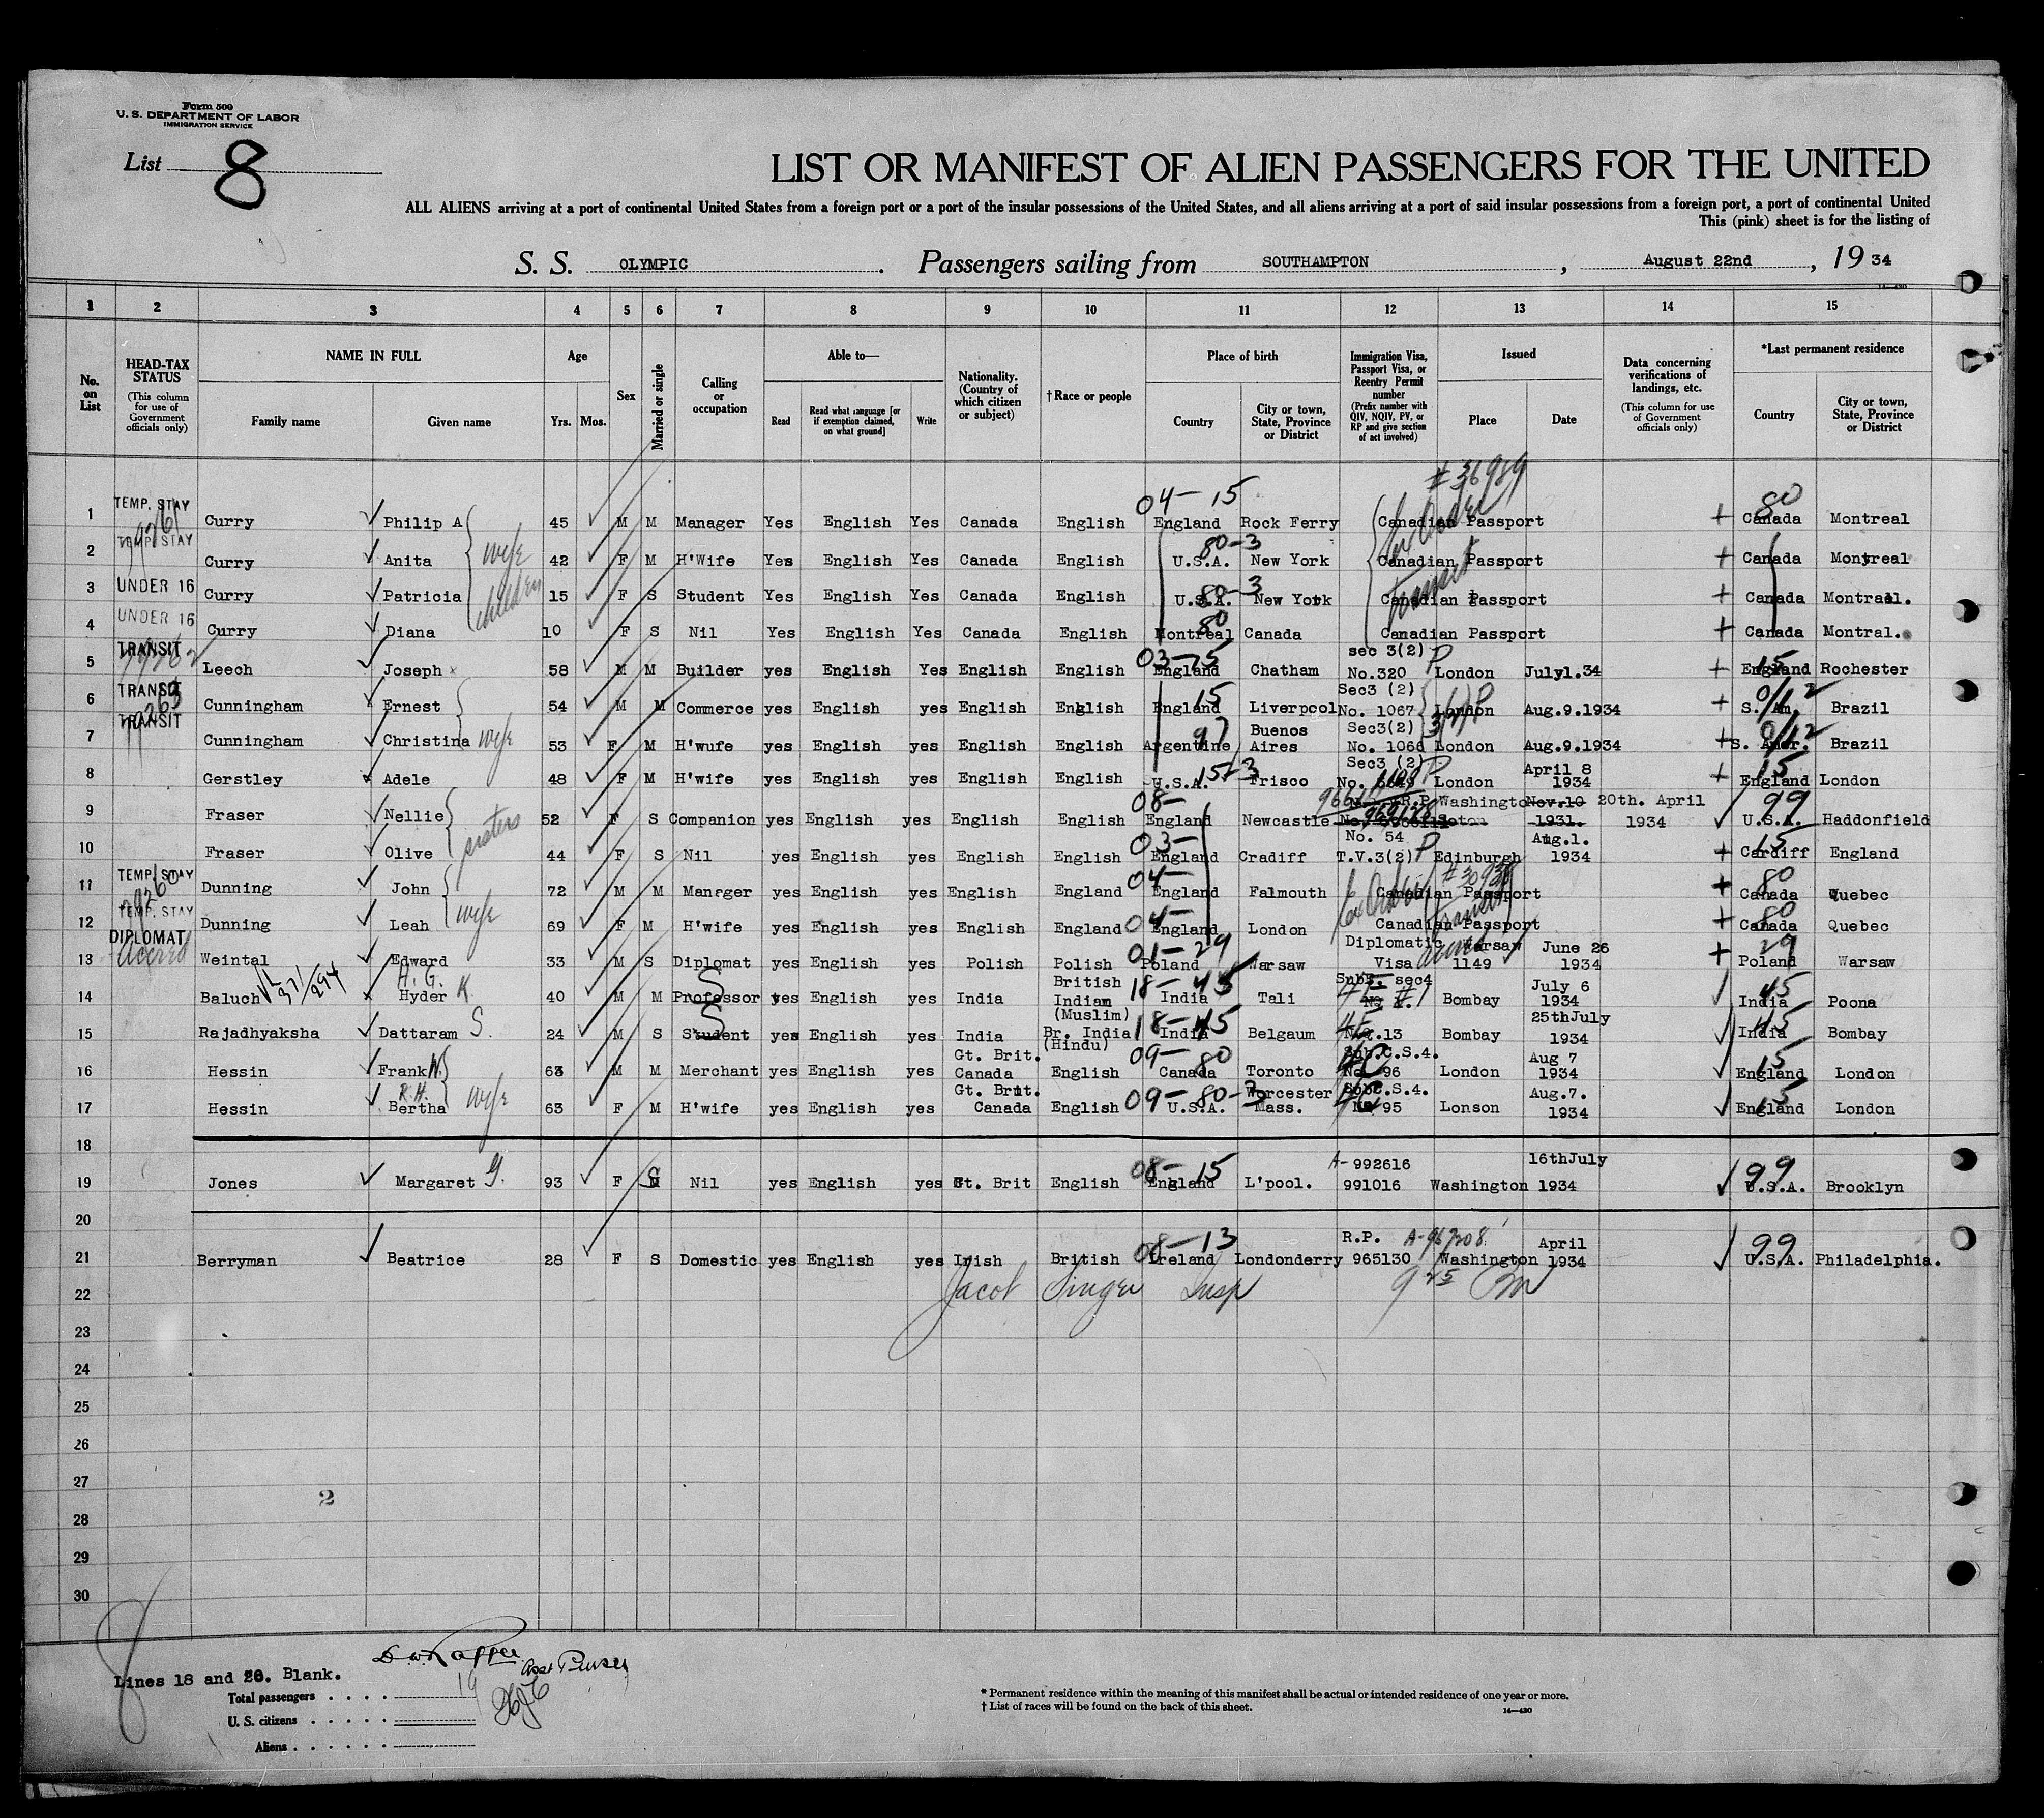 Form 500
U. S. DEPARTMENT OF LABOR
IMMIGRATION SERVICE
List 8
LIST OR MANIFEST OF ALIEN PASSENGERS FOR THE UNITED
ALL ALIENS arriving at a port of continental United States from a foreign port or a port of the insular possessions of the United States, and all aliens arriving at a port of said insular possessions from a foreign port, a port of continental United
This (pink) sheet is for the listing of
S. S. OLYMPIC. Passengers sailing from SOUTHAMPTON, August 22nd, 19 34
14—430
1 2 3 4 5 6 7 8 9 10 11 12 13 14 15
No. on List
HEAD-TAX STATUS (This column for use of Government officials only)
NAME IN FULL Family name Given name
Age Yrs. Mos.
Sex
Married or single
Calling or occupation
Able to— Read Read what language [or if exemption claimed, on what ground] Write
Nationality. (Country of which citizen or subject)
†Race or people
Place of birth Country City or town, State, Province or District
Immigration Visa, Passport Visa, or Reentry Permit number (Prefix number with QIV, NQIV, PV, or RP and give section of act involved)
Issued Place Date
Data concerning verifications of landings, etc. (This column for use of Government officials only)
*Last permanent residence Country City or town, State, Province or District
#36989
04-15 80
1 TEMP. STAY Curry Philip A 45 M M Manager Yes English Yes Canada English England Rock Ferry Canadian Passport Canada Montreal
2 TEMP. STAY Curry Anita wife 42 F M H'Wife Yes English Yes Canada English U.S.A. 80-3 New York Canadian Passport Canada Montreal
3 UNDER 16 Curry Patricia children 15 F S Student Yes English Yes Canada English U.S.A. 80-3 New York Canadian Passport Canada Montreal.
4 UNDER 16 Curry Diana 10 F S Nil Yes English Yes Canada English Montreal 80 Canada Canadian Passport Canada Montral.
5 TRANSIT Leech Joseph 58 M M Builder yes English Yes English English 03-15 England Chatham sec 3(2) No.320 P London July1.34 15 England Rochester
6 TRANSIT Cunningham Ernest 54 M M Commerce yes English yes English English 15 England Liverpool Sec3 (2) No. 1067 London Aug.9.1934 S. Am. Brazil
7 TRANSIT Cunningham Christina wife 53 F M H'wufe yes English yes English English 97 Argentine Buenos Aires Sec3(2) No. 1066 London Aug.9.1934 S. Amer. Brazil
8 Gerstley Adele 48 F M H'wife yes English yes English English U.S.A. 15-3 Frisco Sec3 (2) No. P London April 8 1934 15 England London
9 Fraser Nellie sisters 52 F S Companion yes English yes English English 08- England Newcastle R.P. Washington Nov.10 1931. 20th. April 1934 99 U.S.A. Haddonfield
10 Fraser Olive 44 F S Nil yes English yes English English 03- England Cradiff No. 54 T.V.3(2) P Edinburgh Aug.1. 1934 15 Cardiff England
11 TEMP. STAY Dunning John 72 M M Manager yes English yes English England 04- England Falmouth Canadian Passport 80 Canada Quebec
12 TEMP. STAY Dunning Leah wife 69 F M H'wife yes English yes English England 04- England London Canadian Passport 80 Canada Quebec
13 DIPLOMAT Weintal Edward 33 M S Diplomat yes English yes Polish Polish 01-29 Poland Warsaw Diplomatic Visa Warsaw 1149 June 26 1934 29 Poland Warsaw
14 Baluch H. G. Hyder K 40 M M Professor yes English yes India British Indian (Muslim) 18-45 India Tali Sub. sec4 Bombay July 6 1934 45 India Poona
15 Rajadhyaksha Dattaram S. 24 M S Student yes English yes India Br. India (Hindu) 18-45 India Belgaum No.13 Bombay 25thJuly 1934 45 India Bombay
16 Hessin Frank N. 63 M M Merchant yes English yes Gt. Brit. Canada English 09-80 Canada Toronto Sub.C.S.4. No. 96 London Aug 7 1934 15 England London
17 Hessin R.H. Bertha wife 63 F M H'wife yes English yes Gt. Brit. Canada English 09-80-3 U.S.A. Worcester Mass. Subc.S.4. No 95 Lonson Aug.7. 1934 15 England London
18
19 Jones Margaret G. 93 F S Nil yes English yes Gt. Brit English 08-15 England L'pool. A-992616 991016 Washington 16thJuly 1934 99 U.S.A. Brooklyn
20
21 Berryman Beatrice 28 F S Domestic yes English yes Irish British 08-13 Ireland Londonderry R.P. A-967208 965130 Washington April 1934 99 U.S.A. Philadelphia.
22 Jacob Singer Insp
23
24
25
26
27
2
28
29
30
8
Lines 18 and 20. Blank.
Asst Purser
Total passengers . . . . 19
U. S. citizens . . . . .
Aliens . . . . . .
* Permanent residence within the meaning of this manifest shall be actual or intended residence of one year or more.
† List of races will be found on the back of this sheet.
14—430